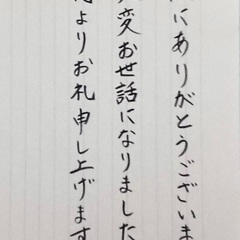 にありがとうございま
変お世話になりました
よりお礼申し上げます